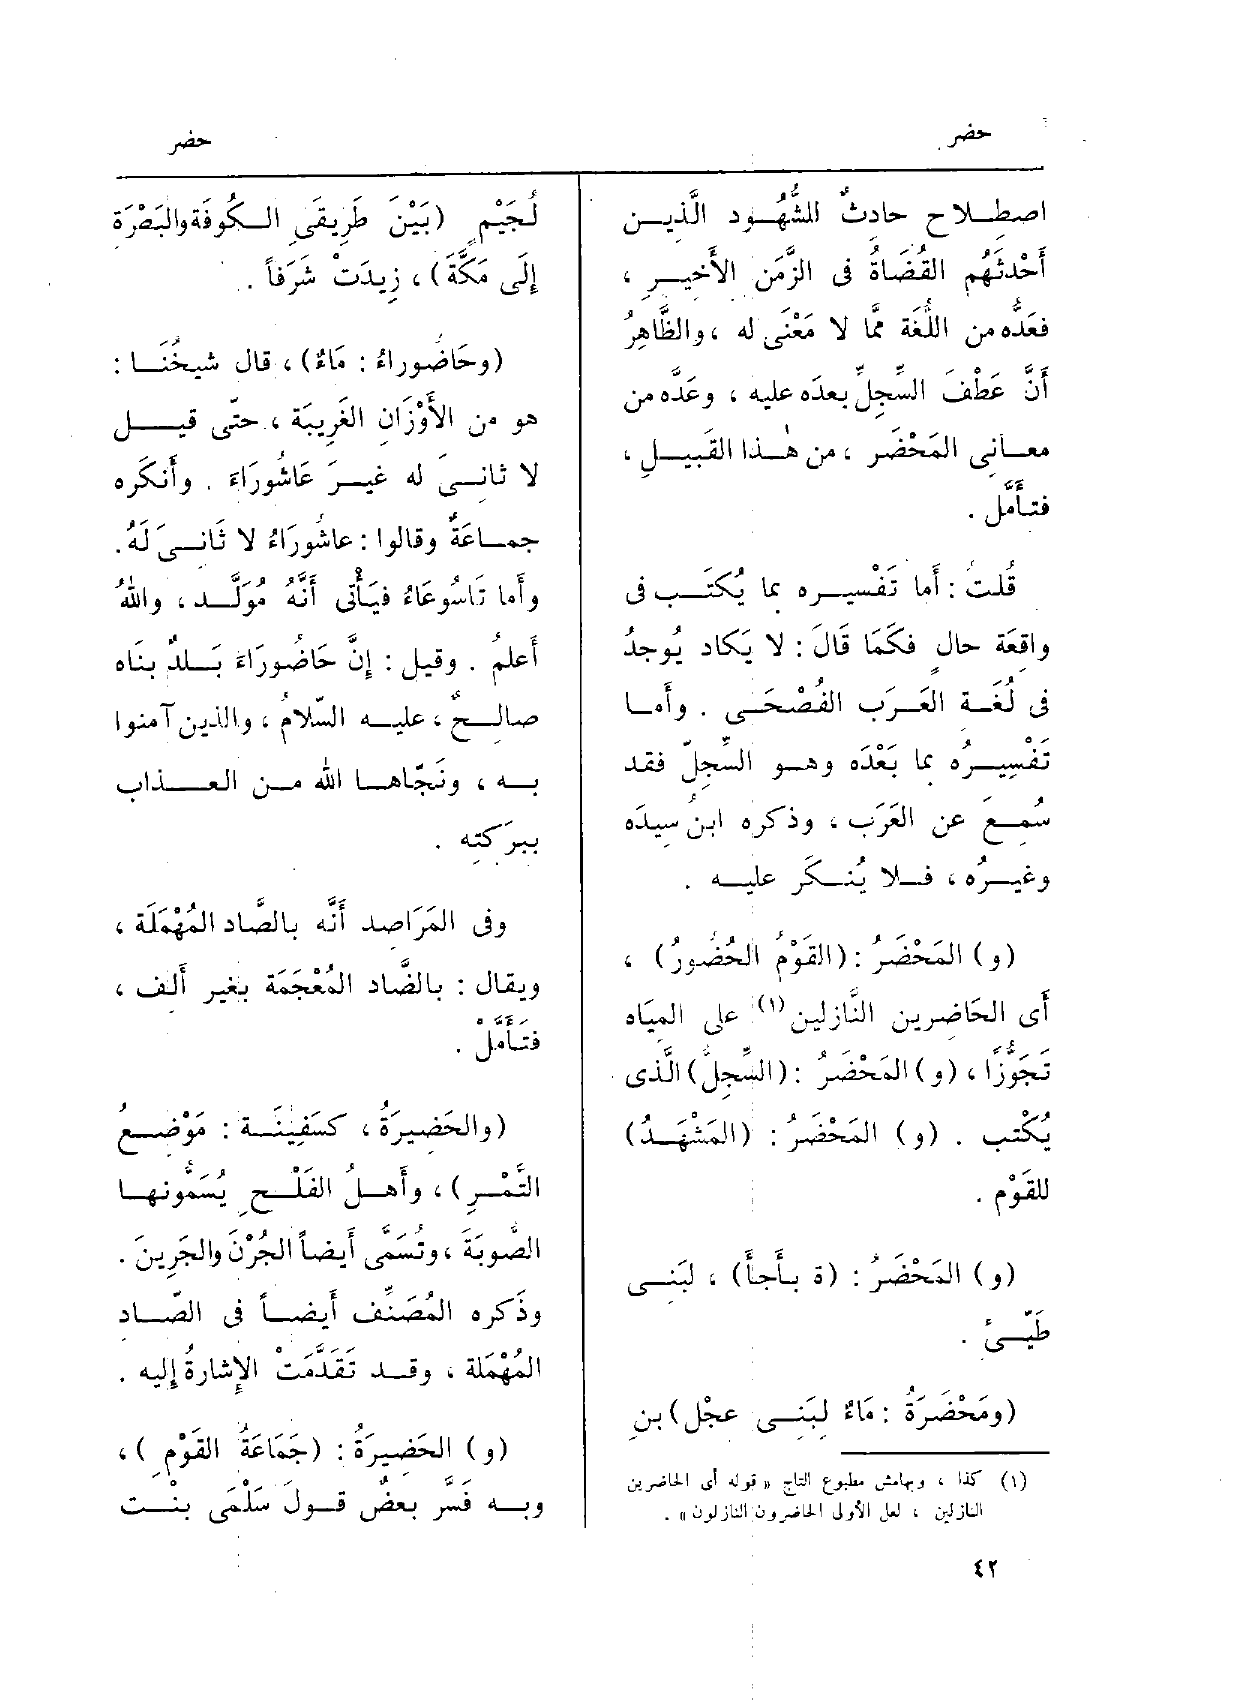 حضر
حضر
اصطـلاح حادثٌ للشُّهُـود الَّذيـن
أَحْدثَهُم القُضَاةُ فى الزَّمَن الأَخيـرِ ،
فعَدُّه من اللُّغَة ممَّا لا مَعْنَى له ، والظَّاهِرُ
أَنَّ عَطْفَ السِّجِلِّ بعدَه عليه ، وعَدَّه من
معـانِى المَحْضَر ، من هٰـذا القَبيـلِ ،
فتـأَمَّل .
قُلتُ : أَما تَفْسِيـره بما يُكْتَـب فى
واقعَة حالٍ فكَمَا قَالَ : لا يَكاد يُوجدُ
فى لُغَـة العَـرَب الفُصْحَـى . وأَمـا
تَفْسِيـرُه بما بَعْدَه وهـو السِّجِلّ فقد
سُمِـعَ عن العَرَب ، وذكره ابنُ سِيدَه
وغيـرُه ، فـلا يُنـكَر عليـه .
(و) المَحْضَرُ : (القَوْمُ الحُضُورُ) ،
أَى الحَاضِرين النَّازلين (١) على المِيَاه
تَجَوُّزًا ، (و) المَحْضَرُ : (السِّجِلُّ) الَّذى
يُكْتب . (و) المَحْضَرُ : (المَشْهَـدُ)
للقَوْم .
(و) المَحْضَرُ : (ة بـأَجأَ) ، لبَنـى
طَيِّـئ .
(ومَحْضَرَةُ : مَاءٌ لبَنـى عجْل) بنِ
(١) كذا ، وبهامش مطبوع التاج « قوله أى الحاضرين
النازلين ، لعل الأولى الحاضرون النازلون » .
لُجَيْمٍ (بَيْنَ طَرِيقَىِ الـكُوفَة والبَصْرَة
إِلَى مَكَّةَ) ، زِيدَتْ شَرَفاً .
(وحَاضُوراءُ : مَاءٌ) ، قال شيخُنَـا :
هو من الأَوْزَان الغَرِيبَة ، حتّى قيـل
لا ثانـىَ له غيـرَ عَاشُورَاءَ . وأَنكَره
جمـاعَةٌ وقالوا : عاشُورَاءُ لا ثَانـىَ لَهُ .
وأَما تَاسُوعَاءُ فيَأْتى أَنَّهُ مُوَلَّـد ، واللهُ
أَعلمُ . وقيل : إِنَّ حَاضُورَاءَ بَـلدٌ بناه
صالـحٌ ، عليـه السّلامُ ، والذين آمنوا
بـه ، ونَجّاهـا الله مـن العـذاب
ببرَكتِه .
وفى المَرَاصِد أَنَّه بالصَّاد المُهْمَلَة ،
ويقال : بالضَّاد المُعْجَمَة بغير أَلف ،
فَتَأَمَّلْ .
(والحَضِيرَةُ ، كسَفِينَـة : مَوْضـعُ
التَّمْـرِ) ، وأَهـلُ الفَلْـحِ يُسَمُّونهـا
الصُّوبَةَ ، وتُسَمَّى أَيضـاً الجُرْنَ والجَرِينَ .
وذَكره المُصَنِّف أَيضـاً فى الصّـاد
المُهْمَلة ، وقـد تَقَدَّمَتْ الإِشارةُ إليه .
(و) الحَضِيرَةُ : (جَمَاعَةُ القَوْمِ) ،
وبـه فَسَّر بعضٌ قـولَ سَلْمَى بنْـت
٤٢